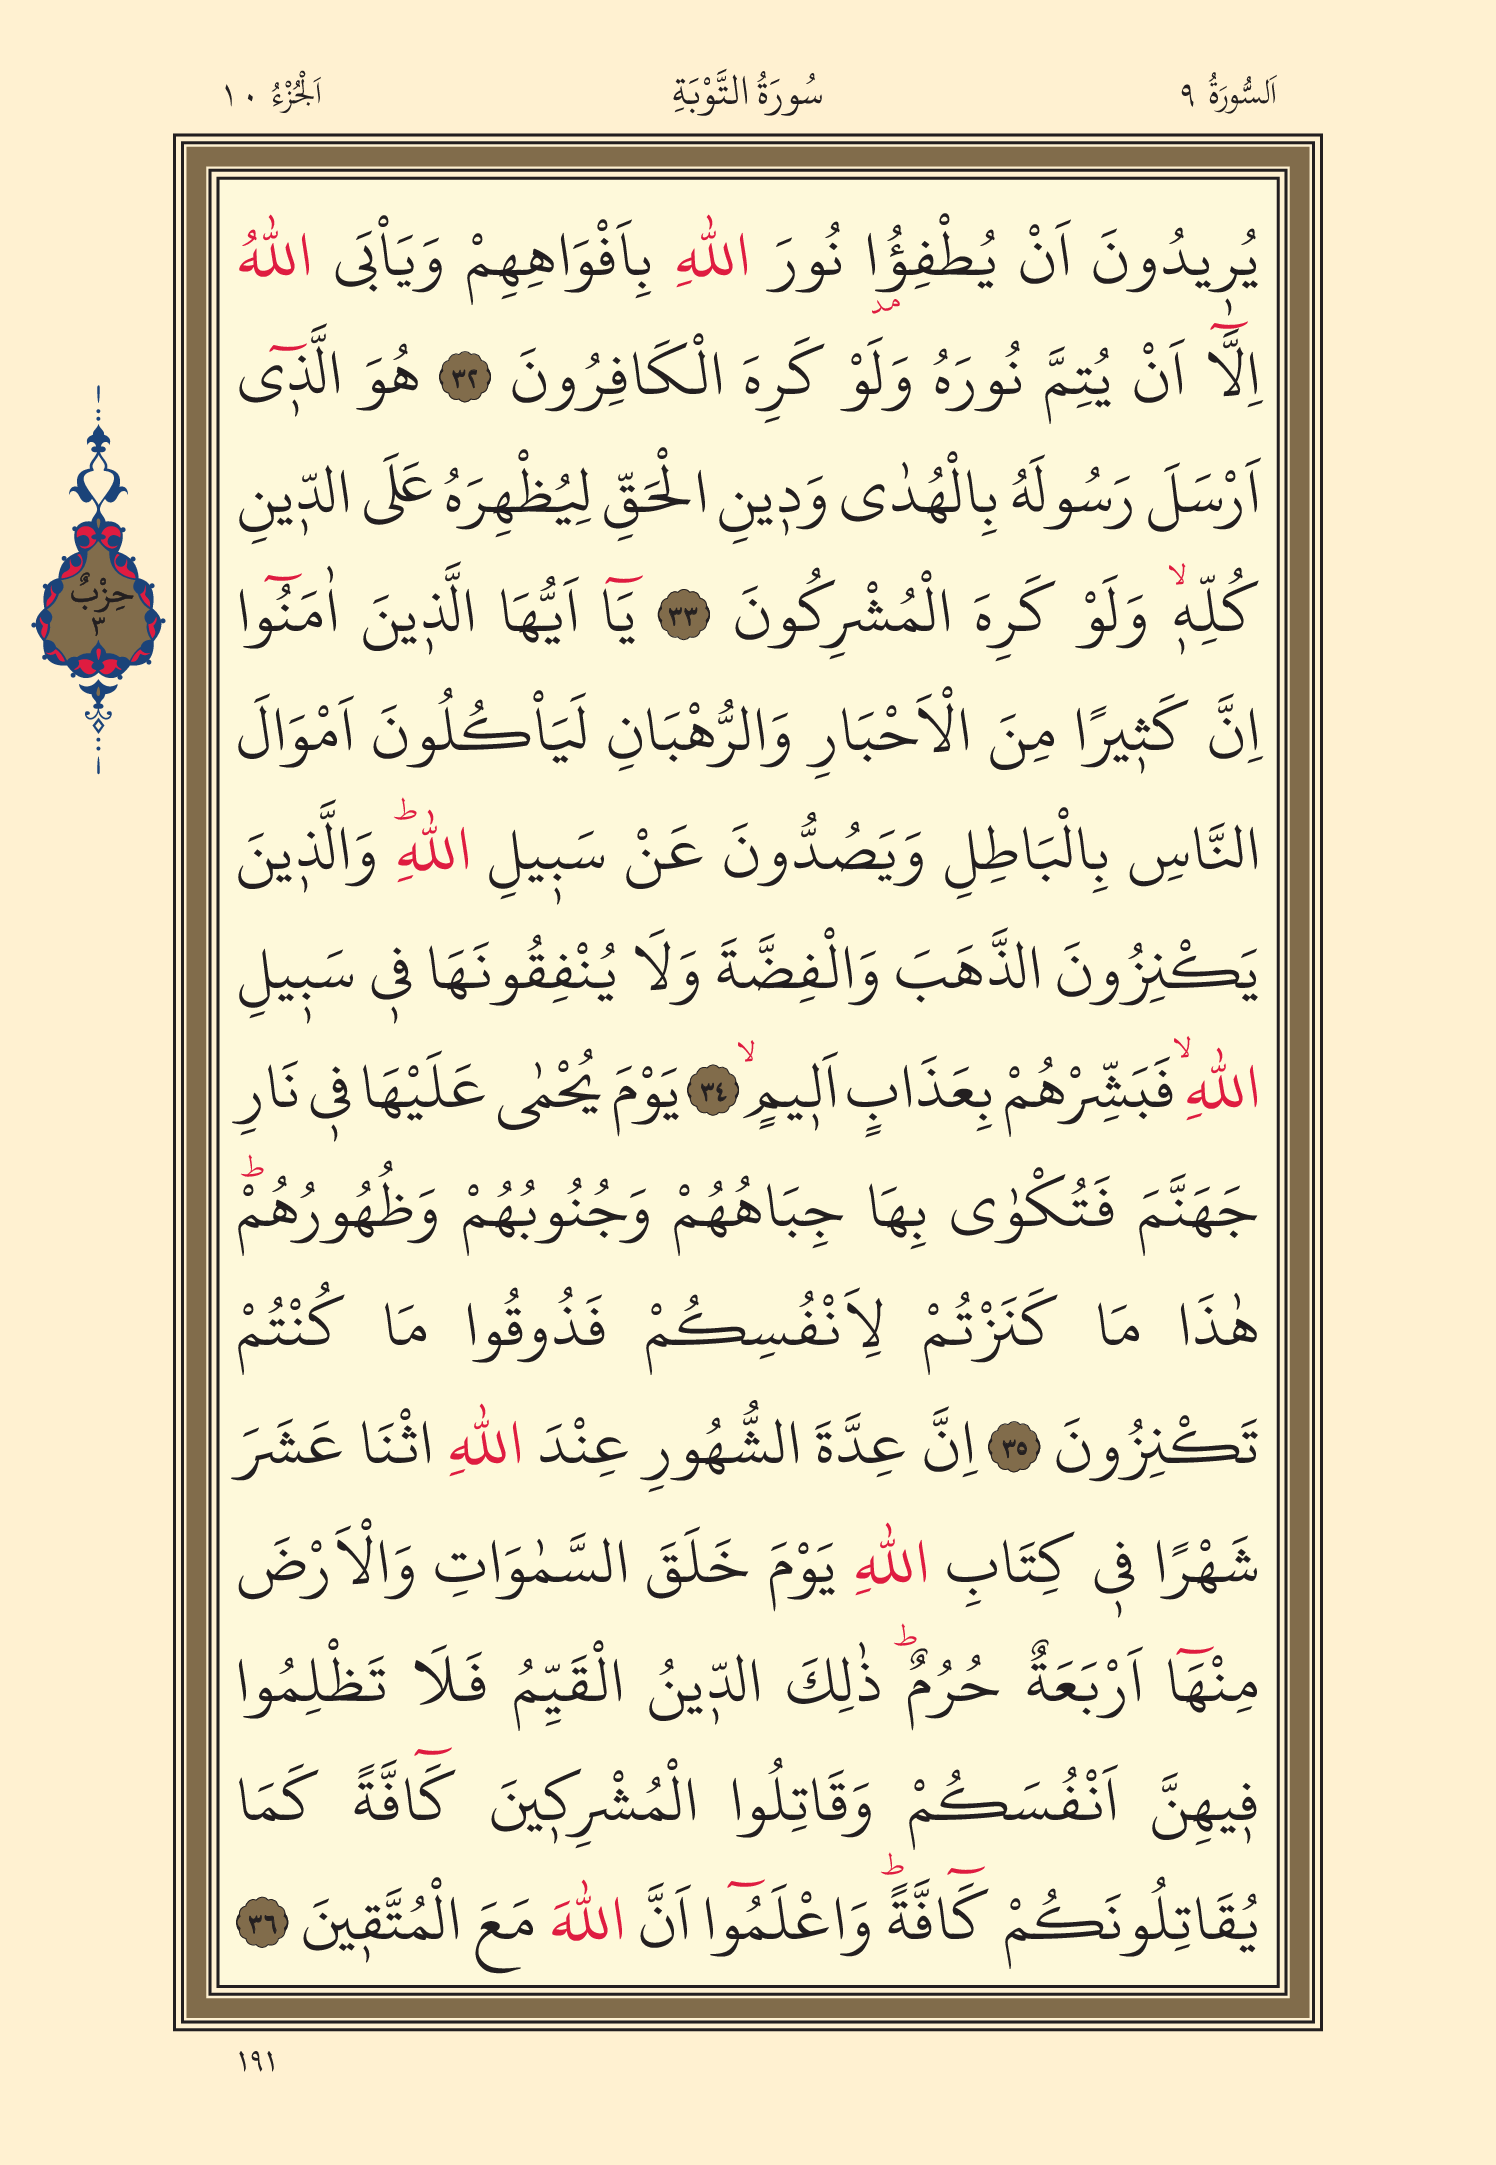 اَلسُّورَةُ ٩ سُورَةُ التَّوْبَةِ اَلْجُزْءُ ١٠
يُرٖيدُونَ اَنْ يُطْفِؤُ۫ا نُورَ اللّٰهِ بِاَفْوَاهِهِمْ وَيَاْبَى اللّٰهُ
مد
اِلَّٓا اَنْ يُتِمَّ نُورَهُ وَلَوْ كَرِهَ الْكَافِرُونَ ٣٢ هُوَ الَّذٖٓى
اَرْسَلَ رَسُولَهُ بِالْهُدٰى وَدٖينِ الْحَقِّ لِيُظْهِرَهُ عَلَى الدّٖينِ
كُلِّهٖۙ وَلَوْ كَرِهَ الْمُشْرِكُونَ ٣٣ يَٓا اَيُّهَا الَّذٖينَ اٰمَنُٓوا
اِنَّ كَثٖيرًا مِنَ الْاَحْبَارِ وَالرُّهْبَانِ لَيَاْكُلُونَ اَمْوَالَ
النَّاسِ بِالْبَاطِلِ وَيَصُدُّونَ عَنْ سَبٖيلِ اللّٰهِؕ وَالَّذٖينَ
يَكْنِزُونَ الذَّهَبَ وَالْفِضَّةَ وَلَا يُنْفِقُونَهَا فٖى سَبٖيلِ
اللّٰهِۙ فَبَشِّرْهُمْ بِعَذَابٍ اَلٖيمٍۙ ٣٤ يَوْمَ يُحْمٰى عَلَيْهَا فٖى نَارِ
جَهَنَّمَ فَتُكْوٰى بِهَا جِبَاهُهُمْ وَجُنُوبُهُمْ وَظُهُورُهُمْؕ
هٰذَا مَا كَنَزْتُمْ لِاَنْفُسِكُمْ فَذُوقُوا مَا كُنْتُمْ
تَكْنِزُونَ ٣٥ اِنَّ عِدَّةَ الشُّهُورِ عِنْدَ اللّٰهِ اثْنَا عَشَرَ
شَهْرًا فٖى كِتَابِ اللّٰهِ يَوْمَ خَلَقَ السَّمٰوَاتِ وَالْاَرْضَ
مِنْهَٓا اَرْبَعَةٌ حُرُمٌؕ ذٰلِكَ الدّٖينُ الْقَيِّمُ فَلَا تَظْلِمُوا
فٖيهِنَّ اَنْفُسَكُمْ وَقَاتِلُوا الْمُشْرِكٖينَ كَٓافَّةً كَمَا
يُقَاتِلُونَكُمْ كَٓافَّةًؕ وَاعْلَمُٓوا اَنَّ اللّٰهَ مَعَ الْمُتَّقٖينَ ٣٦
حِزْبٌ
٣
١٩١